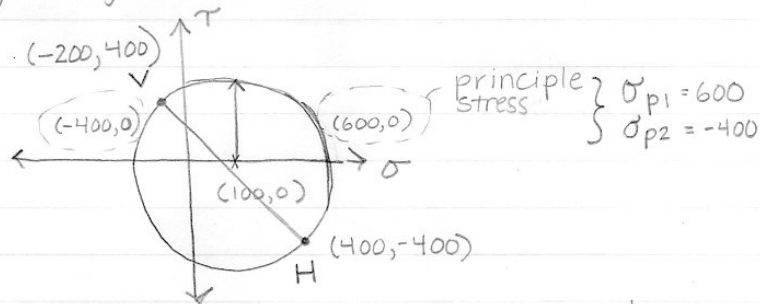 τ
(-200,400)
V
(-400,0)
(600,0)
principle
stress
σp1 = 600
σp2 = -400
σ
(100,0)
(400,-400)
H